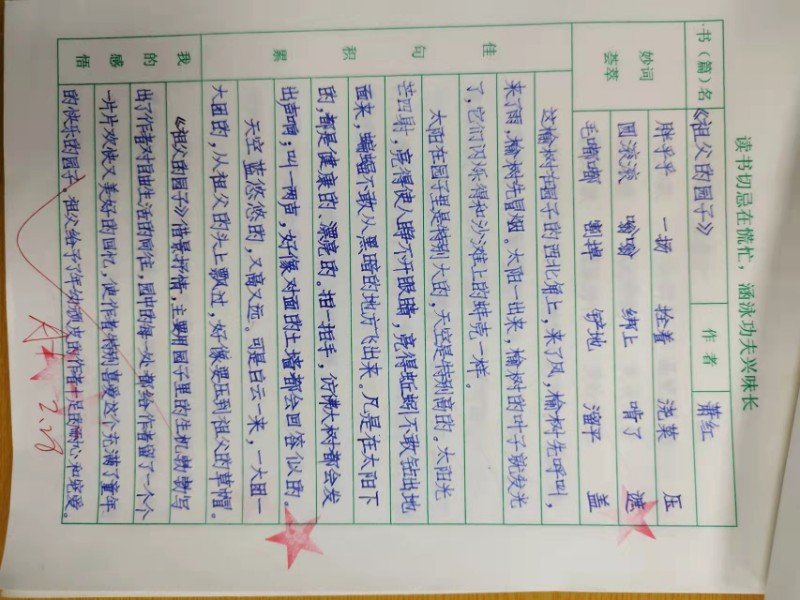 读书切忌在慌忙，涵泳功夫兴味长
书（篇）名 《祖父的园子》 作者 萧红
妙词荟萃
胖乎乎 一场 拴着 浇菜 压
圆滚滚 嗡嗡 绑上 啃了 滤
毛嘟嘟 割掉 铲地 溜平 盖
佳句积累
这榆树在园子的西北角上，来了风，榆树先呼叫，
来了雨，榆树先冒烟。太阳一出来，榆树的叶子就发光
了，它们闪烁得和沙滩上的蚌壳一样。
太阳在园子里是特别大的，天空是特别高的。太阳光
芒四射，亮得使人睁不开眼睛，亮得蚯蚓不敢钻出地
面来，蝙蝠不敢从黑暗的地方飞出来。凡是在太阳下
的，都是健康的、漂亮的。拍一拍手，仿佛大树都会发
出声响；叫一两声，好像对面的土墙都会回答似的。
天空蓝悠悠的，又高又远。可是白云一来，一大团一
大团的，从祖父的头上飘过，好像要压到祖父的草帽。
我的感悟
《祖父的园子》借景抒情，主要用园子里的生机勃勃写
出了作者对自由生活的向往，园中的每一处都给作者留了一个个
一片片欢快又美好的回忆，使作者特别喜爱这个充满了童年
的快乐的园子。祖父给予了年幼顽皮的作者十足的耐心和宠爱。
2.28